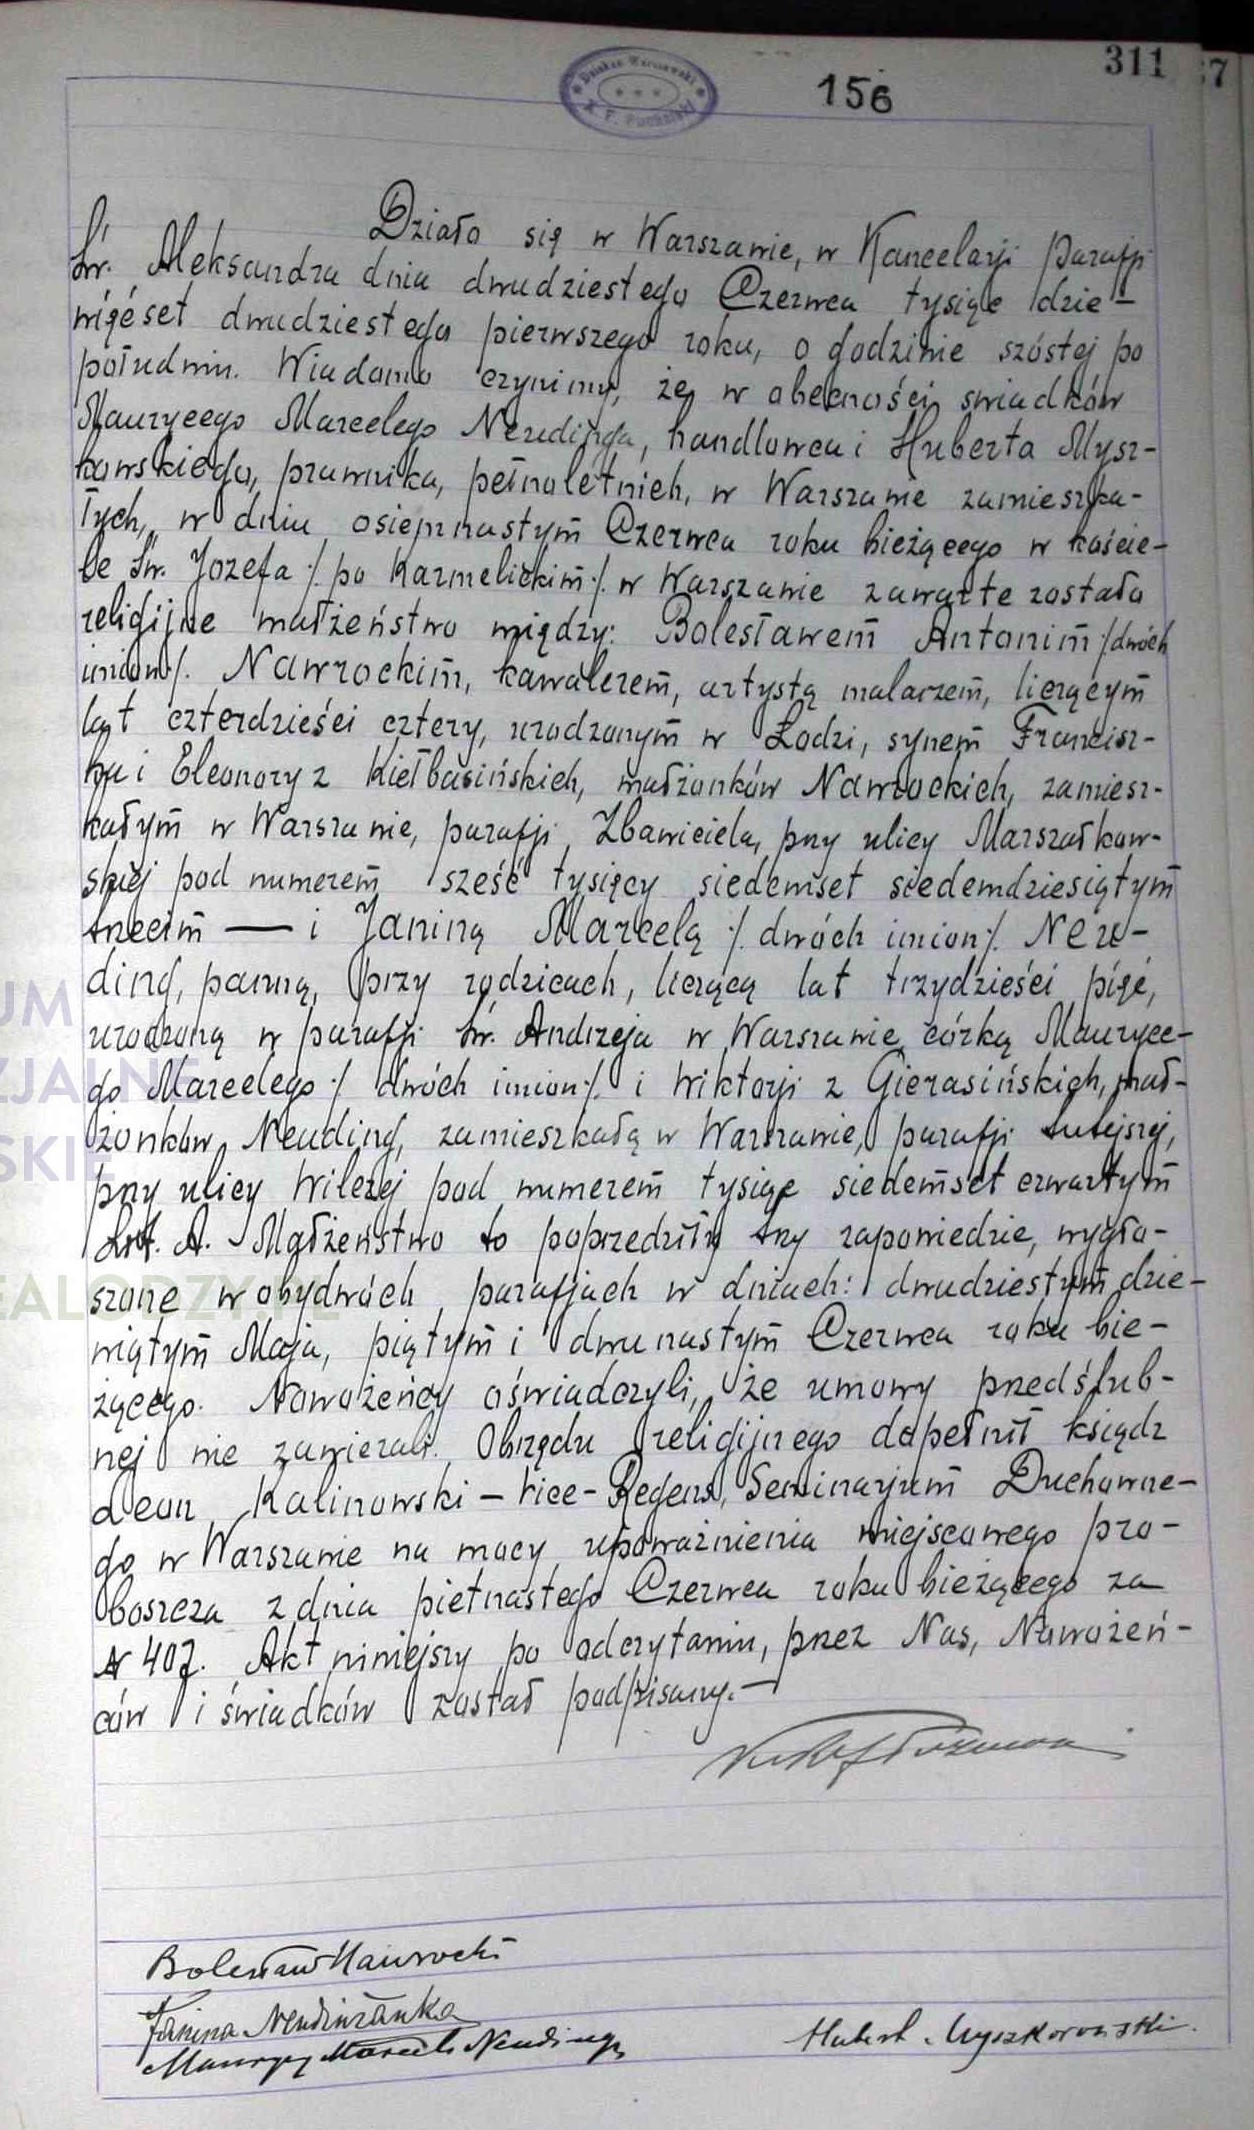 311
37
Dziekan Warszawski
156
Działo się w Warszawie, w Kancelarji parafji
Św. Aleksandra dnia dwudziestego Czerwca tysiąc dzie-
więćset dwudziestego pierwszego roku, o godzinie szóstej po
południu. Wiadomo czynimy, że w obecności świadków
Maurycego Marcelego Neudinga, handlowca i Huberta Mysz-
kowskiego, prawnika, pełnoletnich, w Warszawie zamieszka-
łych, w dniu osiemnastym Czerwca roku bieżącego w koście-
le Św. Jozefa /. po Karmelickim ./. w Warszawie zawarte zostało
religijne małżeństwo między: Bolesławem Antonim /dwóch
imion/. Nawrockim, kawalerem, artystą malarzem, liczącym
lat czterdzieści cztery, urodzonym w Łodzi, synem Francisz-
ka i Eleonory z Kiełbasińskich, małżonków Nawrockich, zamiesz-
kałym w Warszawie, parafji Zbawiciela, przy ulicy Marszałkow-
skiej pod numerem sześć tysięcy siedemset siedemdziesiątym
trzecim — i Janiną Marcelą /. dwóch imion /. Neu-
ding, panną, przy rodzicach, liczącą lat trzydzieści pięć,
urodzoną w parafji Św. Andrzeja w Warszawie córką Mauryce-
go Marcelego /. dwóch imion /. i Wiktorji z Gierasińskich, mał-
żonków Neuding, zamieszkałą w Warszawie, parafji tutejszej,
przy ulicy Wilczej pod numerem tysiąc siedemset czwartym
Lit. A. Małżeństwo to poprzedziły trzy zapowiedzie, wygło-
szone w obydwóch parafjach w dniach: dwudziestym dzie-
wiątym Maja, piątym i dwunastym Czerwca roku bie-
żącego. Nowożeńcy oświadczyli, że umowy przedślub-
nej nie zawierali. Obrzędu religijnego dopełnił ksiądz
Leon Kalinowski – Vice-Regens Seminarjum Duchowne-
go w Warszawie na mocy upoważnienia miejscowego pro-
boszcza z dnia pietnastego Czerwca roku bieżącego za
N 407. Akt niniejszy po odczytaniu, przez Nas, Nowożeń-
ców i świadków został podpisany. —
Bolesław Nawrocki
Janina Neudinżanka
Maurycy Marceli Neuding
Hubert Myszkorowski